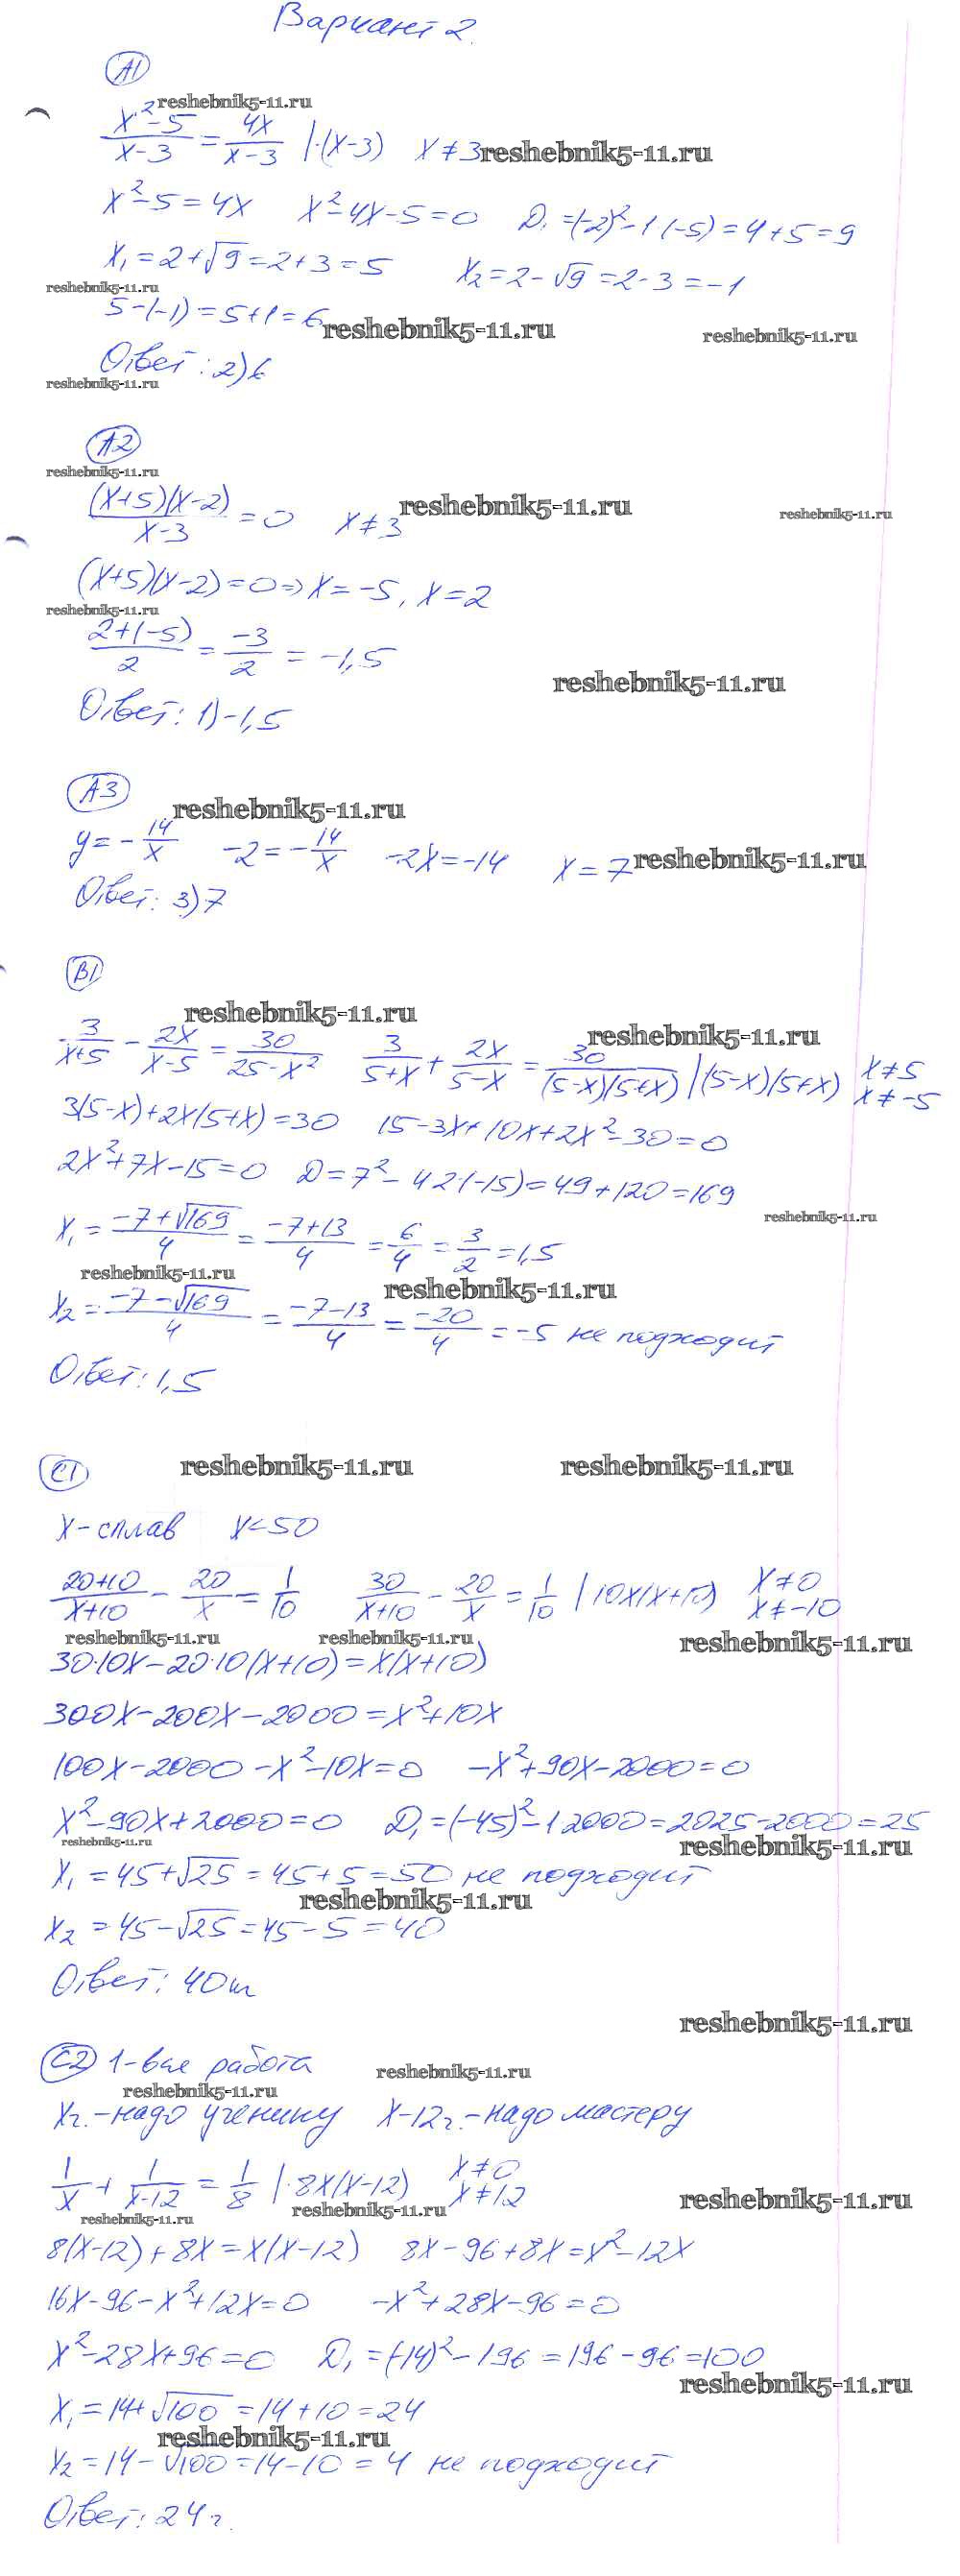 Вариант 2.
А1
reshebnik5-11.ru
x²-5/x-3 = 4x/x-3 |·(x-3) x≠3 reshebnik5-11.ru
x²-5=4x x²-4x-5=0 D₁=(-2)²-1·(-5)=4+5=9
x₁=2+√9=2+3=5 x₂=2-√9=2-3=-1
reshebnik5-11.ru
5-(-1)=5+1=6 reshebnik5-11.ru reshebnik5-11.ru
Ответ: 2) 6
reshebnik5-11.ru
А2
reshebnik5-11.ru
(x+5)(x-2)/x-3 = 0 x≠3 reshebnik5-11.ru reshebnik5-11.ru
(x+5)(x-2)=0 => x=-5, x=2
reshebnik5-11.ru
2+(-5)/2 = -3/2 = -1,5
reshebnik5-11.ru
Ответ: 1) -1,5
А3
reshebnik5-11.ru
y=-14/x -2=-14/x -2x=-14 x=7 reshebnik5-11.ru
Ответ: 3) 7
В1
reshebnik5-11.ru reshebnik5-11.ru
3/x+5 - 2x/x-5 = 30/25-x² 3/5+x + 2x/5-x = 30/(5-x)(5+x) |(5-x)(5+x) x≠5 x≠-5
3(5-x)+2x(5+x)=30 15-3x+10x+2x²-30=0
2x²+7x-15=0 D=7²-4·2·(-15)=49+120=169
reshebnik5-11.ru
x₁=-7+√169/4 = -7+13/4 = 6/4 = 3/2 = 1,5
reshebnik5-11.ru reshebnik5-11.ru
x₂=-7-√169/4 = -7-13/4 = -20/4 = -5 не подходит
Ответ: 1,5
С1 reshebnik5-11.ru reshebnik5-11.ru
x-сплав x<50
20+10/x+10 - 20/x = 1/10 30/x+10 - 20/x = 1/10 | 10x(x+10) x≠0 x≠-10
reshebnik5-11.ru reshebnik5-11.ru reshebnik5-11.ru
30·10x-20·10(x+10)=x(x+10)
300x-200x-2000=x²+10x
100x-2000-x²-10x=0 -x²+90x-2000=0
x²-90x+2000=0 D₁=(-45)²-1·2000=2025-2000=25
reshebnik5-11.ru reshebnik5-11.ru
x₁=45+√25=45+5=50 не подходит
reshebnik5-11.ru
x₂=45-√25=45-5=40
Ответ: 40т
reshebnik5-11.ru
С2 1-вся работа reshebnik5-11.ru
reshebnik5-11.ru
xч.-надо ученику x-12ч.-надо мастеру
1/x + 1/x-12 = 1/8 |·8x(x-12) x≠0 x≠12 reshebnik5-11.ru
reshebnik5-11.ru reshebnik5-11.ru
8(x-12)+8x=x(x-12) 8x-96+8x=x²-12x
16x-96-x²+12x=0 -x²+28x-96=0
x²-28x+96=0 D₁=(-14)²-1·96=196-96=100
reshebnik5-11.ru
x₁=14+√100=14+10=24
reshebnik5-11.ru
x₂=14-√100=14-10=4 не подходит
Ответ: 24ч.